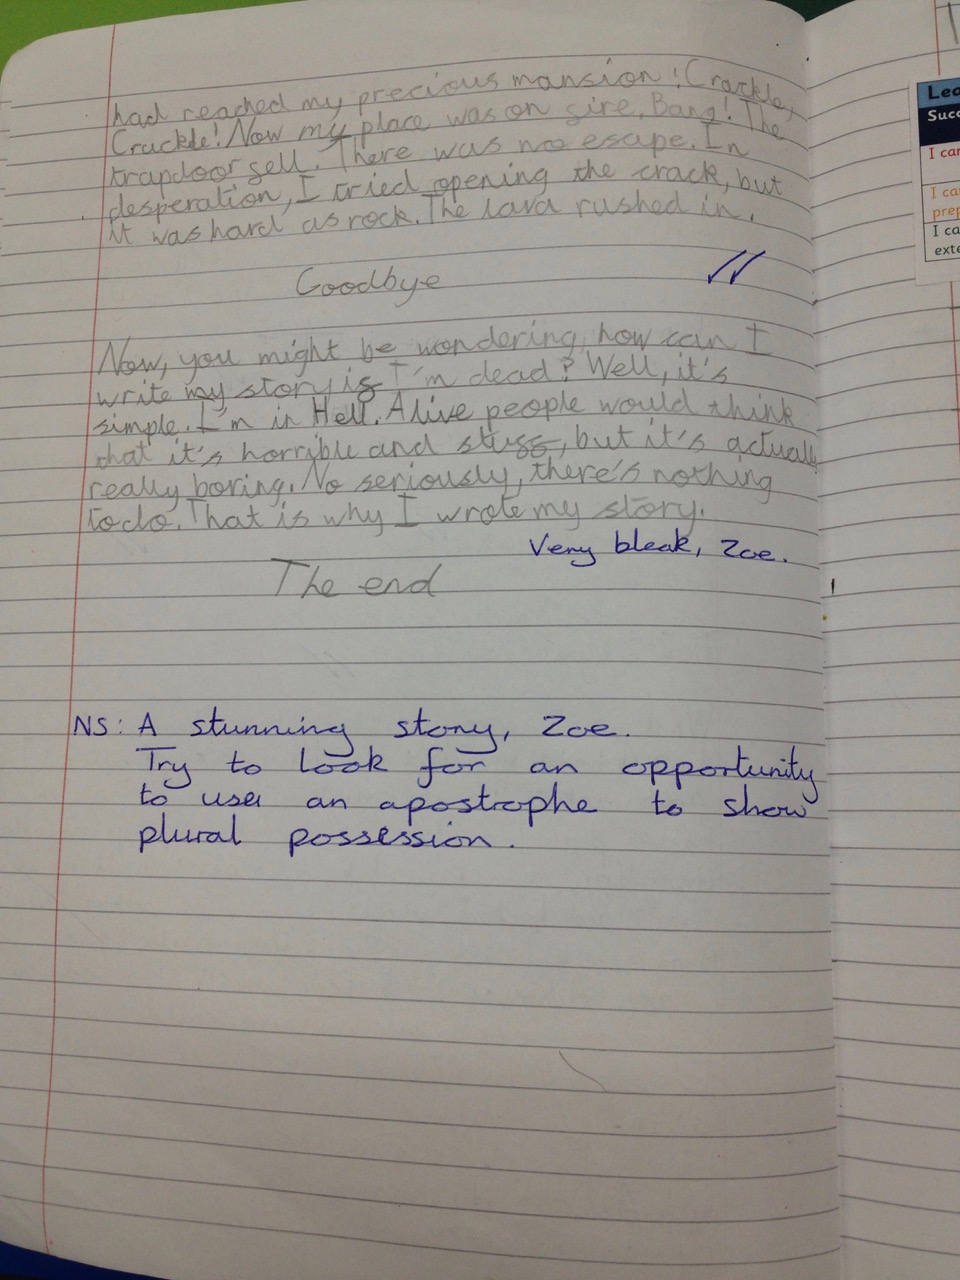 had reached my precious mansion! Crackle,
Crackle! Now my place was on fire. Bang! The
trapdoor fell. There was no escape. In
desperation, I tried opening the crack, but
it was hard as rock. The lava rushed in.
Goodbye
Now, you might be wondering, how can I
write my story if I'm dead? Well, it's
simple. I'm in Hell. Alive people would think
that it's horrible and stuff, but it's actually
really boring. No seriously, there's nothing
to do. That is why I wrote my story.
Very bleak, Zoe.
The end
NS: A stunning story, Zoe.
Try to look for an opportunity
to use an apostrophe to show
plural possession.
Lea
Succ
I can
I ca
prep
I ca
exte